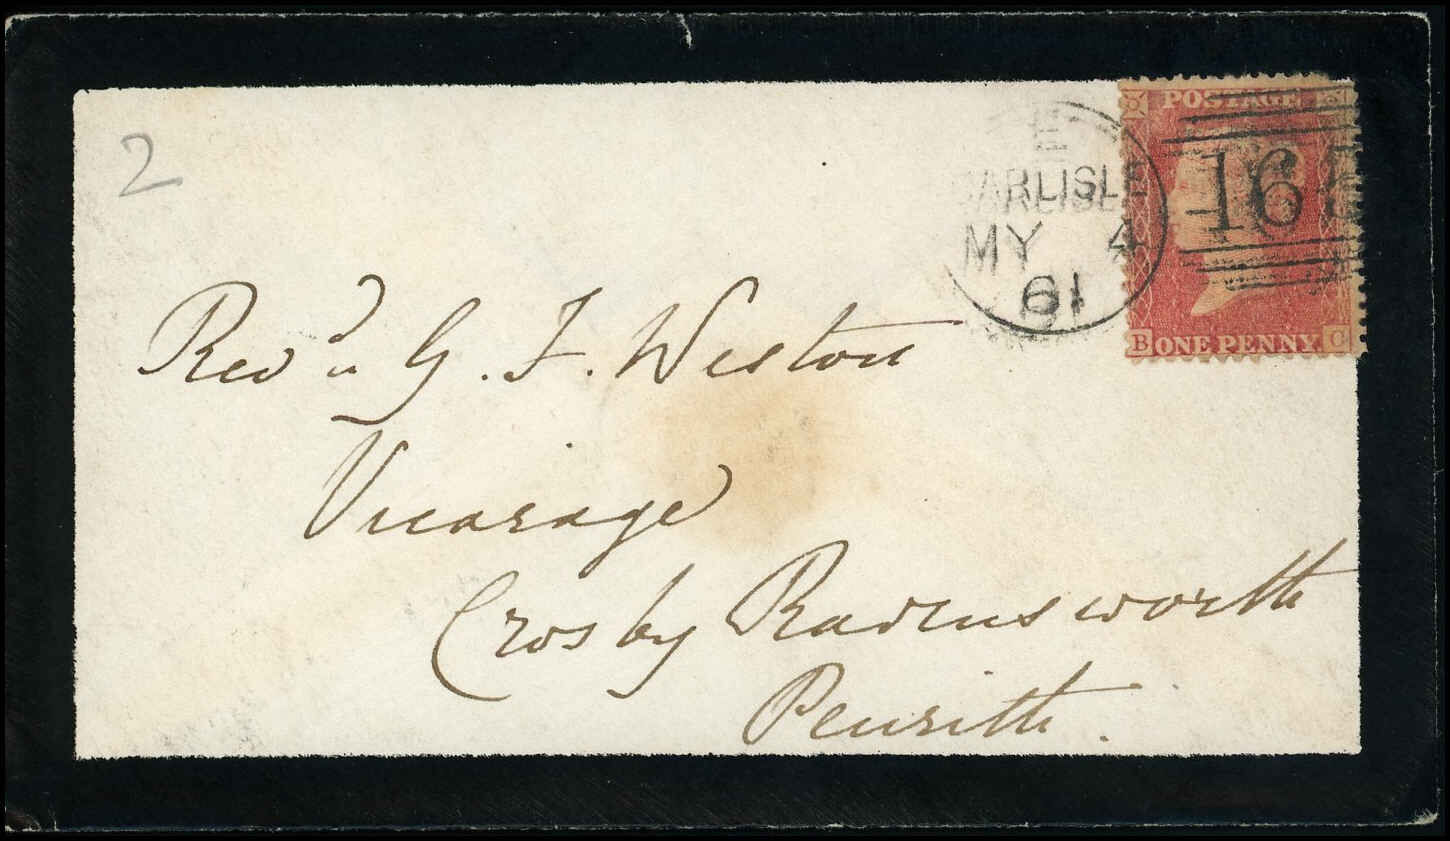 2
POSTAGE
E
CARLISLE
MY 4
61
16
B ONE PENNY C
Revd G. F. Weston
Vicarage
Crosby Ravensworth
Penrith.